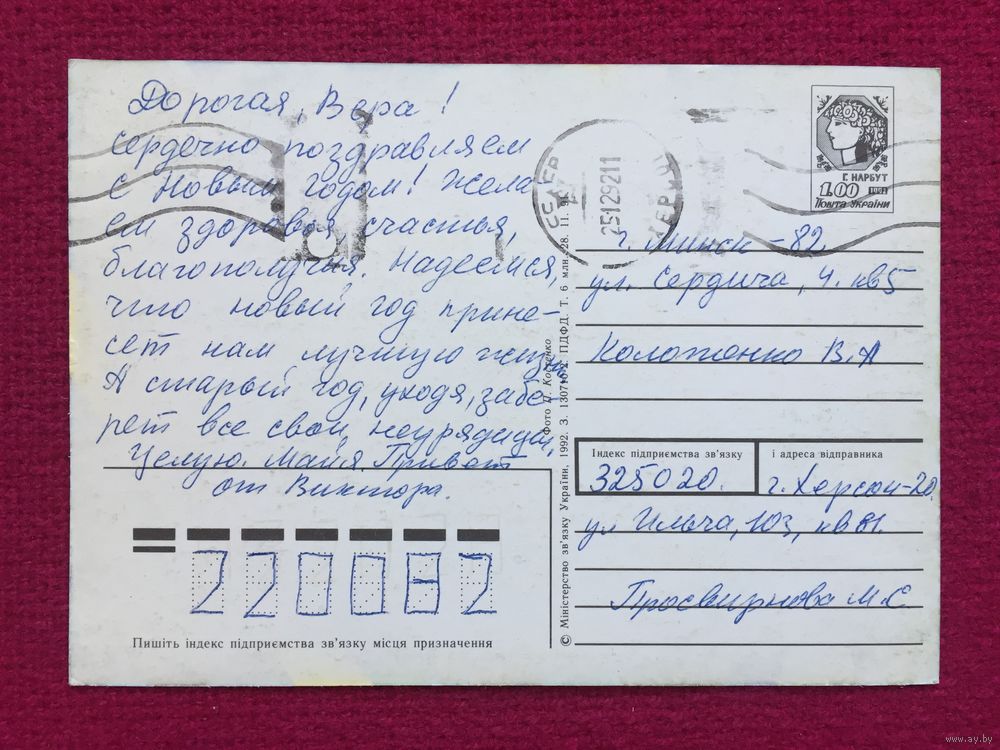 Дорогая, Вера!
Сердечно поздравляем
с Новым годом! Жела
ем здоровья, счастья,
благополучья. Надеемся,
что новый год прине-
сёт нам лучшую жизнь
А старый год, уходя, забе-
рет все свои неурядицы.
Целую. Майя. Привет
от Виктора.
220082
Пишіть індекс підприємства зв'язку місця призначення
© Міністерство зв'язку України, 1992. З. 130716. ПДФД. Т. 6 млн. 28. 11. 91
Фото Костенко
СССР
25-1292 11
Г. НАРБУТ
1.00
Пошта України
г. Минск-82
ул. Сердича, 4. кв 5
Коложенко В.А
Індекс підприємства зв'язку
і адреса відправника
325020.
г. Херсон-20
ул Ильича, 103, кв 81.
Просвирнова М.С
www.ay.by